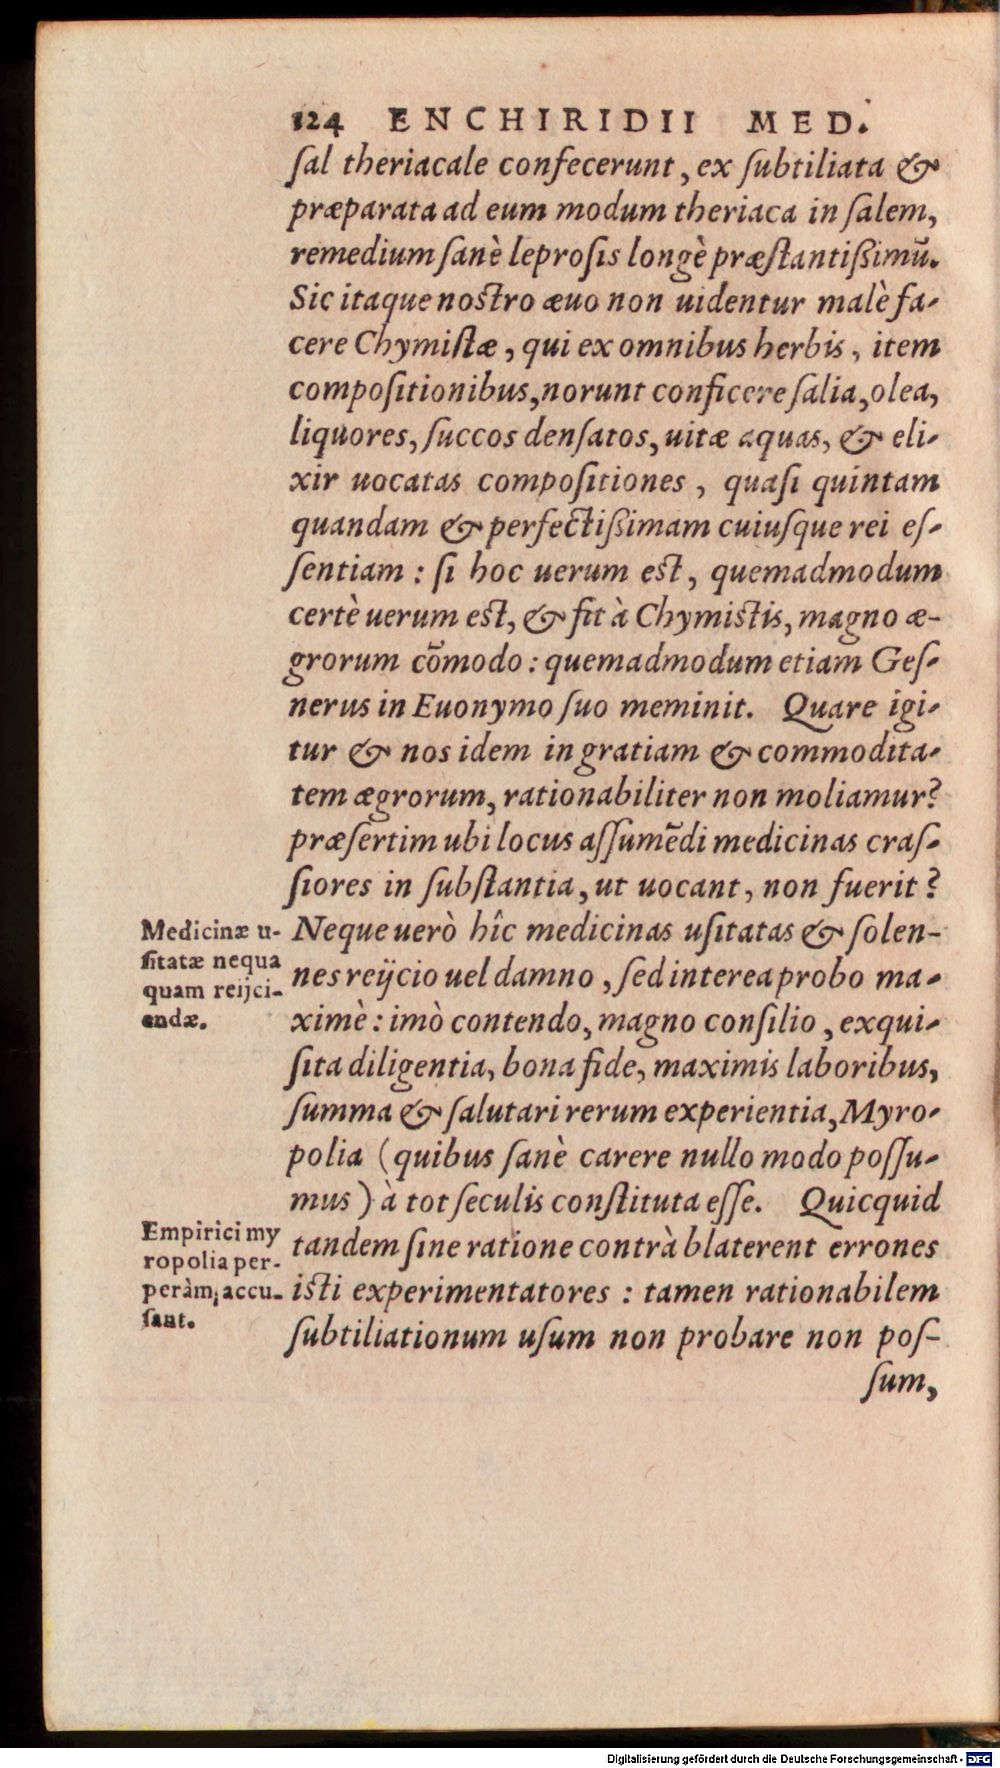 124 ENCHIRIDII MED.
ſal theriacale confecerunt, ex ſubtiliata &
præparata ad eum modum theriaca in ſalem,
remedium ſanè leproſis longè præſtantißimũ.
Sic itaque nostro æuo non uidentur malè fa-
cere Chymiſtæ, qui ex omnibus herbis, item
compoſitionibus, norunt conficere ſalia, olea,
liquores, ſuccos denſatos, uitæ aquas, & eli-
xir uocatas compoſitiones, quaſi quintam
quandam & perfectißimam cuiuſque rei eſ-
ſentiam : ſi hoc uerum est, quemadmodum
certè uerum est, & fit à Chymistis, magno æ-
grorum cõmodo : quemadmodum etiam Geſ-
nerus in Euonymo ſuo meminit. Quare igi-
tur & nos idem in gratiam & commodita-
tem ægrorum, rationabiliter non moliamur?
præſertim ubi locus aſſumẽdi medicinas craſ-
ſiores in ſubſtantia, ut uocant, non fuerit?
Medicinæ u-
ſitatæ nequa
quam reijci-
endæ.
Neque uerò hîc medicinas uſitatas & ſolen-
nes reijcio uel damno, ſed interea probo ma-
ximè : imò contendo, magno conſilio, exqui-
ſita diligentia, bona fide, maximis laboribus,
ſumma & ſalutari rerum experientia, Myro-
polia (quibus ſanè carere nullo modo poſſu-
mus) à tot ſeculis conſtituta eſſe. Quicquid
Empirici my
ropolia per-
peràm accu-
ſant.
tandem ſine ratione contrà blaterent errones
isti experimentatores : tamen rationabilem
ſubtiliationum uſum non probare non poſ-
ſum,
Digitalisierung gefördert durch die Deutsche Forschungsgemeinschaft - DFG